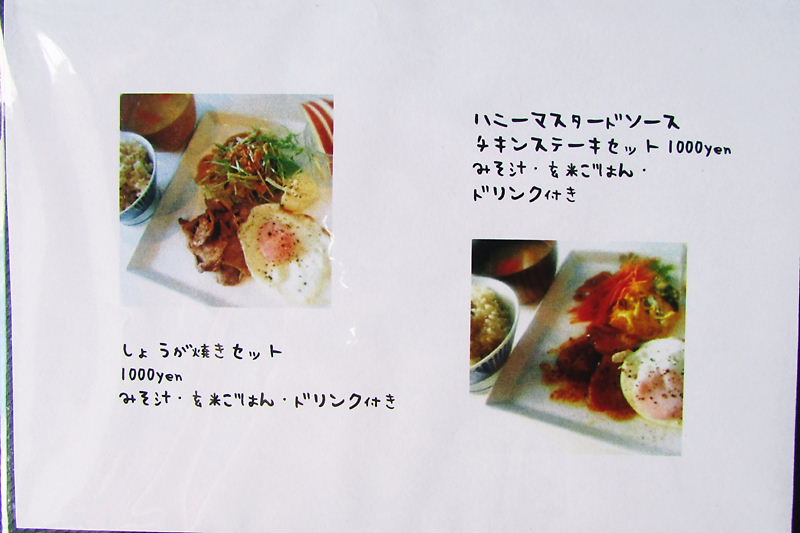 しょうが焼きセット
1000yen
みそ汁・玄米ごはん・ドリンク付き
ハニーマスタードソース
チキンステーキセット 1000yen
みそ汁・玄米ごはん・
ドリンク付き